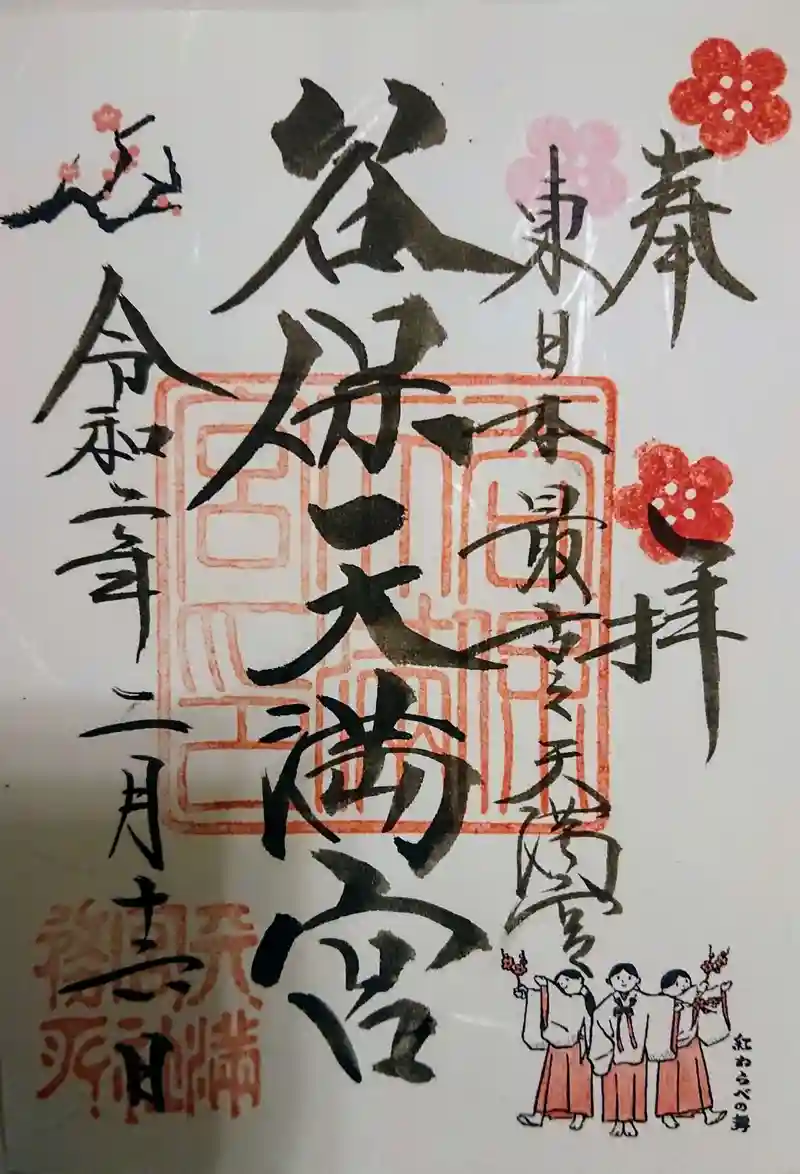 奉拝
東日本最古之天満宮
谷保天満宮
令和二年二月十二日
谷保
天満
宮印
天満
宮社
務所
紅わらべの舞